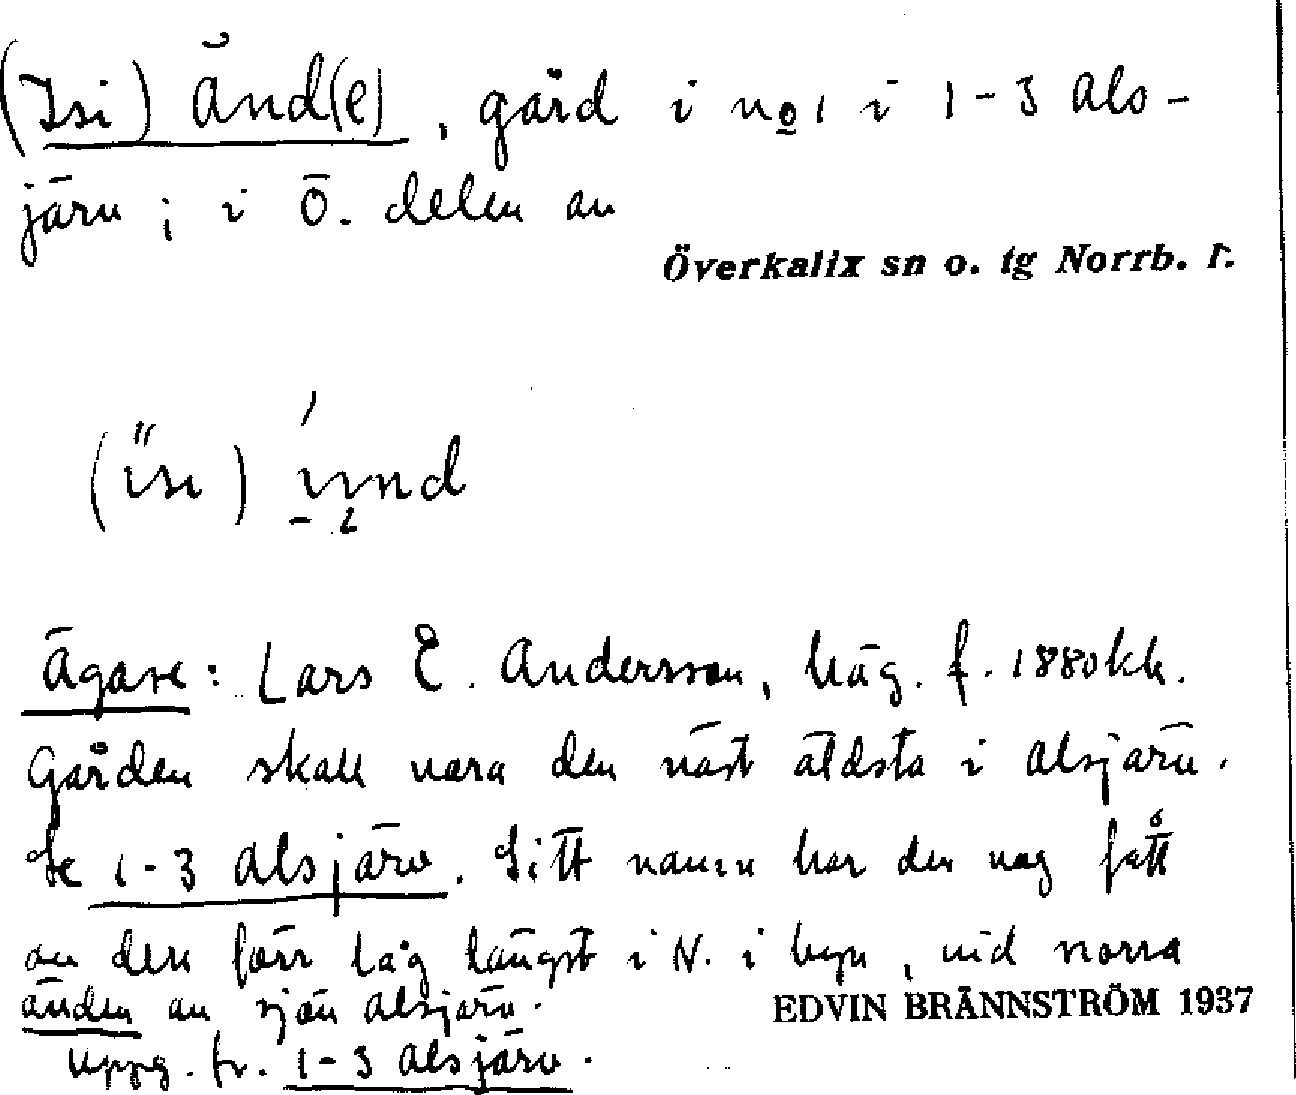 (Isi) änd(e), gård i no 1 i 1-3 Als-
järv; i Ö. delen av
Överkalix sn o. tg Norrb. l.
Ägare: Lars E. Andersson, häg. f. 1880 kh.
Gården skall vara den näst äldsta i Alsjärv.
Se 1-3 Alsjärv. Sitt namn har den nog fått
av den förr låg längst i N. i byn, vid norra
änden av sjön Alsjärv.
EDVIN BRÄNNSTRÖM 1937
Uppg. fr. 1-3 Alsjärv.